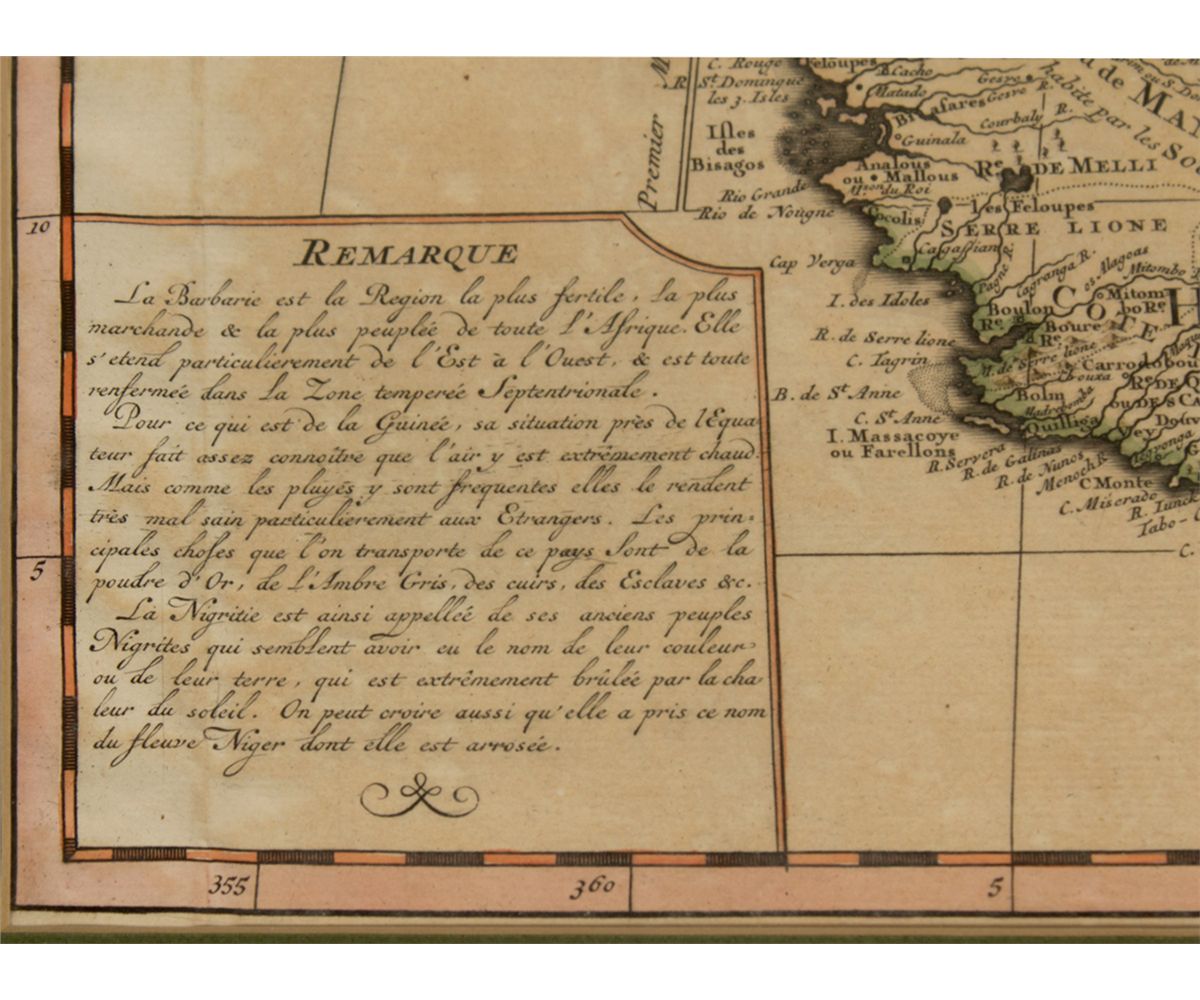 REMARQUE
La Barbarie est la Region la plus fertile, la plus
marchande & la plus peupleé de toute L'Afrique. Elle
s'etend particulierement de l'Est à l'Ouest, & est toute
renfermeé dans La Zone tempereé Septentrionale.
Pour ce qui est de la Guineé, sa situation près de l'Equa
teur fait assez connoître que l'air y est extrêmement chaud.
Mais comme les pluyes y sont frequentes elles le rendent
très mal sain particulierement aux Etrangers. Les prin-
cipales choses que l'on transporte de ce pays sont de la
poudre d'Or, de L'Ambre Gris, des cuirs, des Esclaves &c.
La Nigritie est ainsi appelleé de ses anciens peuples
Nigrites qui semblent avoir eu le nom de leur couleur
ou de leur terre, qui est extrêmement brûleé par la cha
leur du soleil. On peut croire aussi qu'elle a pris ce nom
du fleuve Niger dont elle est arroseé.
10
5
355
360
5
Premier
C. Rouge
R St. Domingue
les 3. Isles
Isles
des
Bisagos
Rio Grande
Rio de Nougne
Cap Verga
I. des Idoles
R. de Serre lione
C. Tagrin
B. de St. Anne
C. St. Anne
I. Massacoye
ou Farellons
R. Servera
R. de Galinas
R. de Nunos
Menoch R.
C Monte
C. Miserado
R. Iunck
Tabo-
C.
Feloupes
B. Cacho
Matado
Gesve
Gesve R.
Courbaly R.
Guinala
Biafares
de MAN
habite par les Sou
Analous
ou Mallous
Mson du Roi
Re. DE MELLI
Cocolis
Les Feloupes
SERRE LIONE
Cagassian
Pagne R.
Cagranga R.
es Alagoas
Mitombo
Mitom
bo Re.
COTE
Boulon
Re.
Boure
Re.
R. de Serre lione
Carrodobou
Chouxa
Bolm
Re. DE
ou DES CA
Quilliga
Vey
Douv